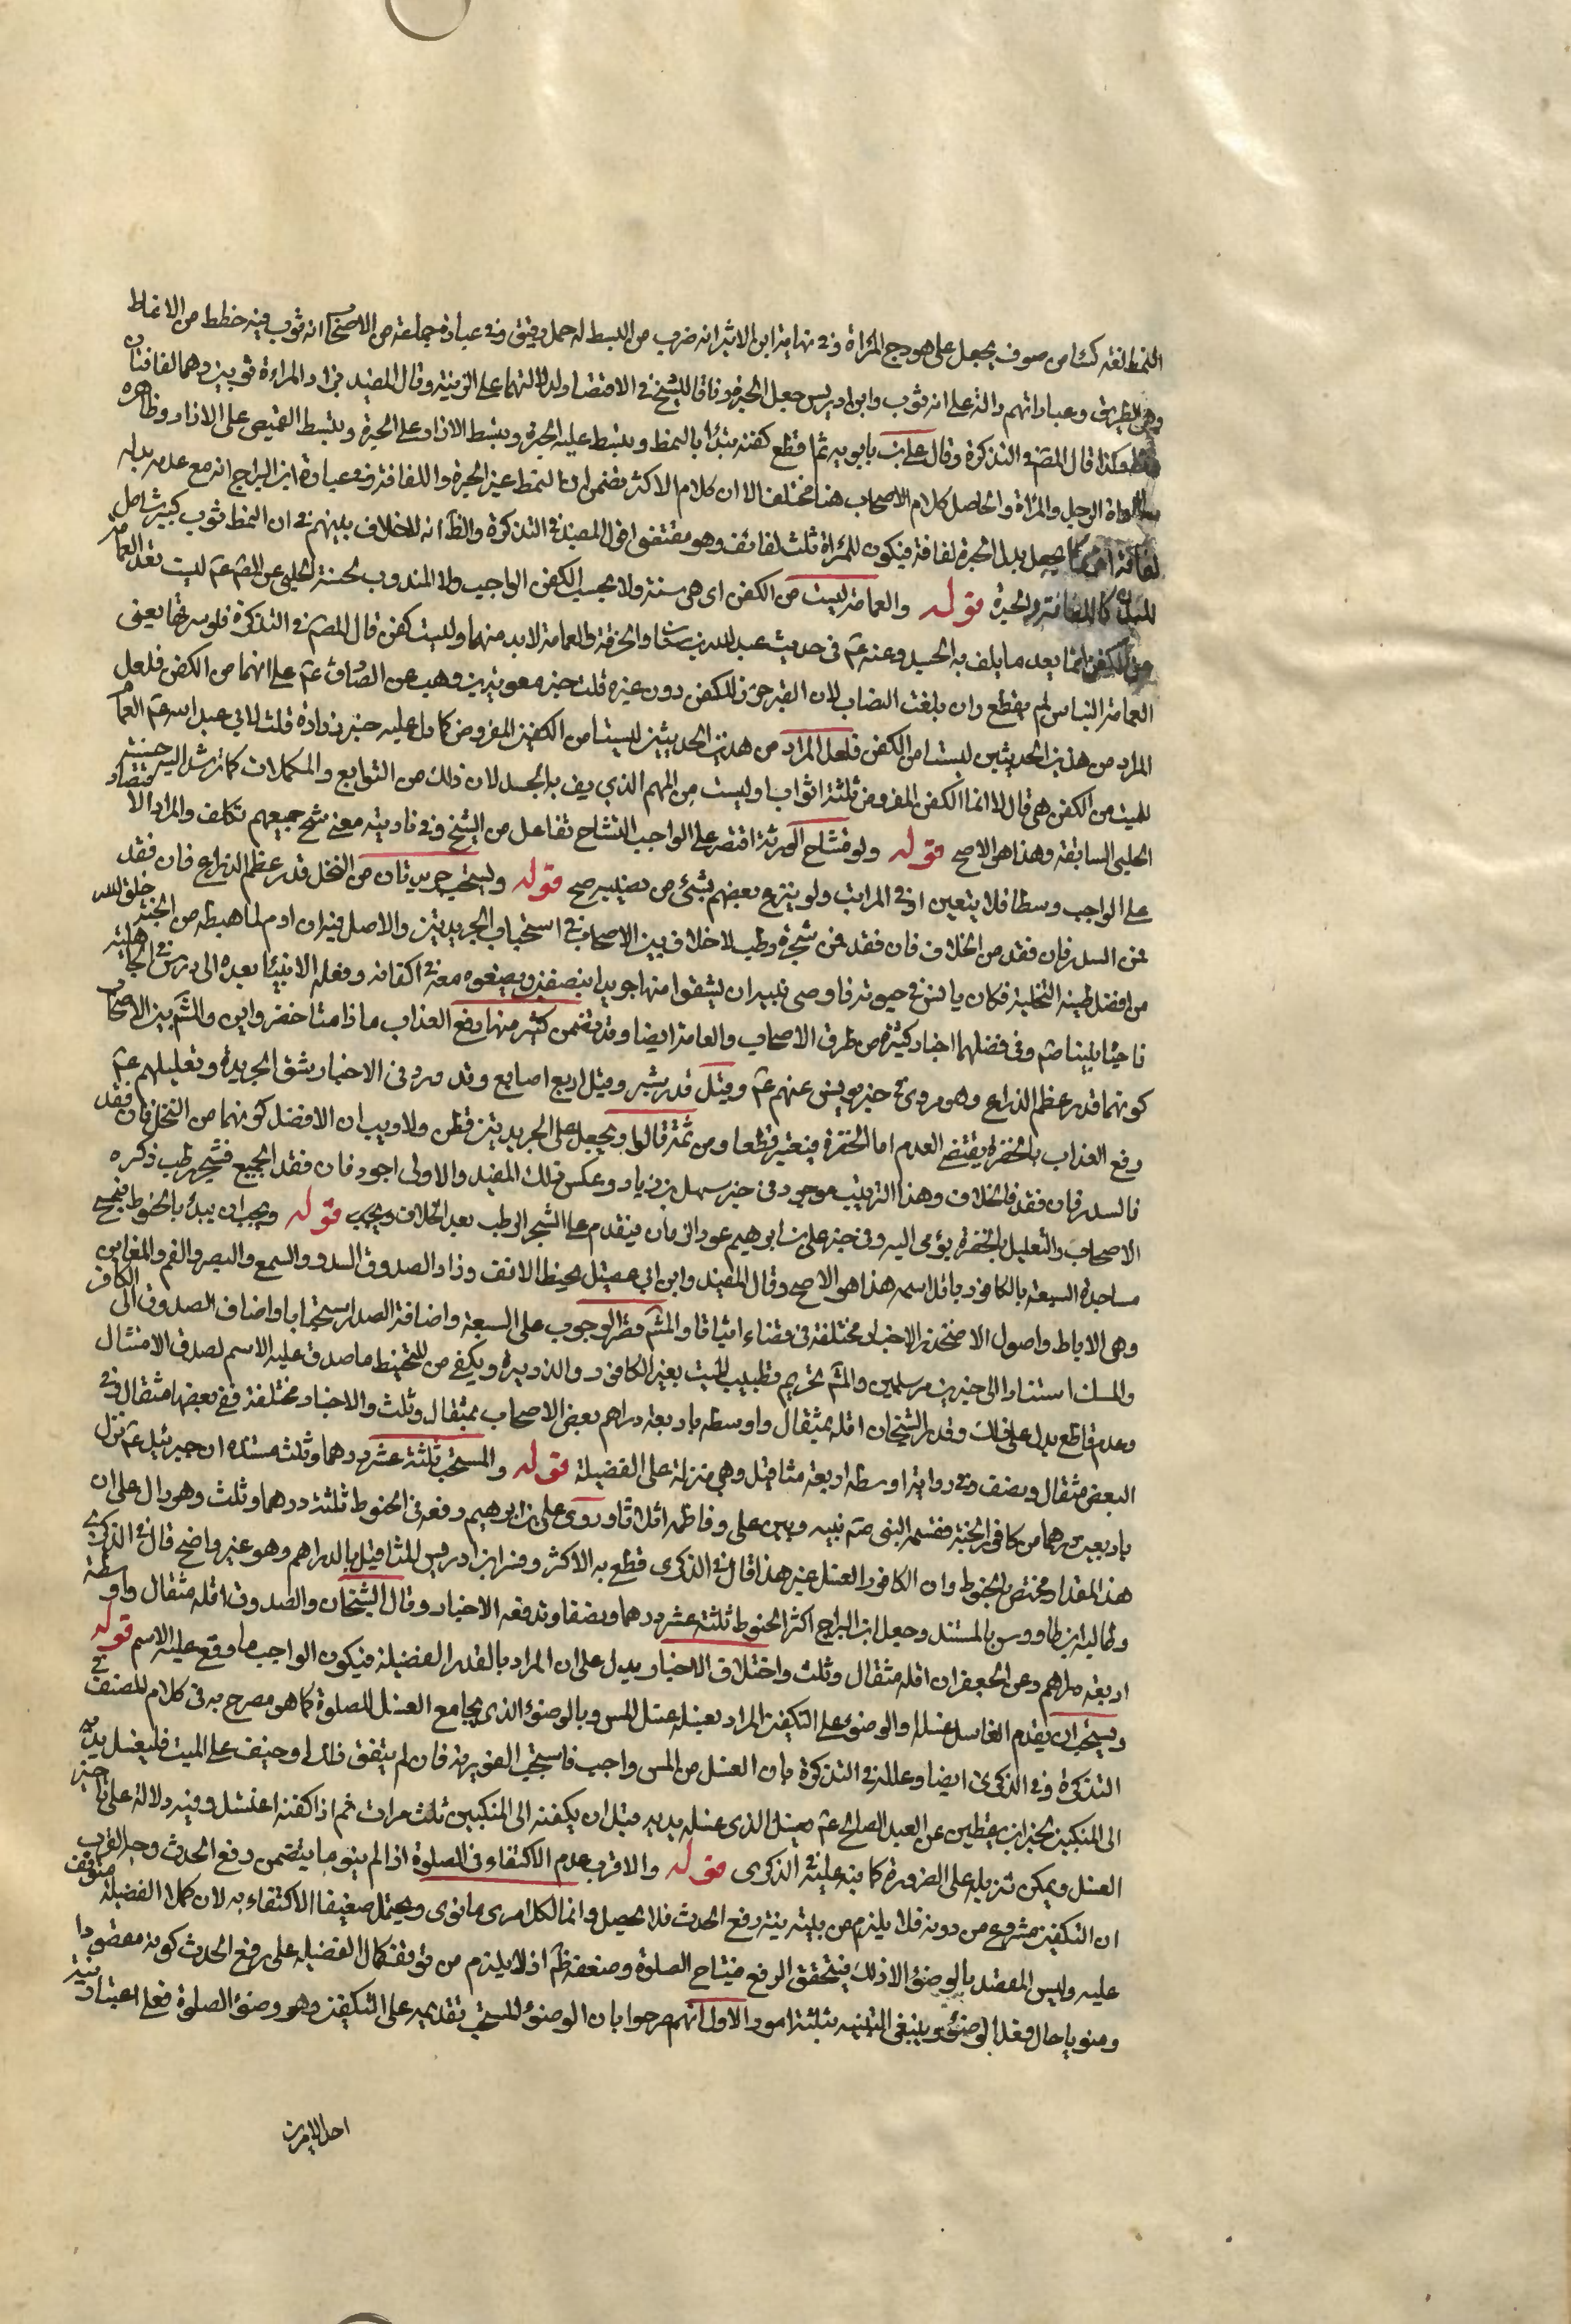 النمط لغة كساء من صوف يجعل على هودج المراة وفى نهاية ابن الاثير انه ضرب من البسط له خمل رقيق وفى عبارة جماعة من الاصحاب انه ثوب فيه خطط من الانماط
وهى الطريق وعباراتهم دالة على انه ثوب وابن ادريس جعل الحبرة وفاقا للشيخ فى الاقتصاد لدلالتهما على الزينة وقال المفيد يزاد المراءة ثوبين وهما لفافتان
وكذا قال المص فى التذكرة وقال على بن بابويه ثم اقطع كفنه تبدأ بالنمط وتبسط عليه الحبرة وتبسط الازار على الحبرة وتبسط القميص على الازار وظاهره
مساواة الرجل والمراة والحاصل كلام الاصحاب هنا مختلف الا ان كلام الاكثر يتضمن ان النمط غير الحبرة واللفافة وفى عبارة ابن البراج انه مع عدمه بدله
لفافة اخرى كما يجعل بدل الحبرة لفافة فيكون للمراة ثلث لفائف وهو مقتضى قول المفيد فى التذكرة والظ انه لا خلاف بينهم فى ان النمط ثوب كبير شامل
للبدن كاللفافة والحبرة قوله والعمامة ليست من الكفن اى هى سنة ولا يحسب الكفن الواجب ولا المندوب لحسنة الحلبى عن الص ع ليست تعد العمامة
من الكفن انما يعد ما يلف به الجسد وعنه ع فى حديث عبد الله بن سنان والخرقة والعمامة لابد منهما وليست كفن قال المص فى التذكرة فلو سرقها يعنى
العمامة النباش لم يقطع وان بلغت النصاب لان القبر حرز للكفن دون غيره قلت خبر معوية بن وهب عن الصادق ع على انهما من الكفن فلعل
المراد من هذين الحديثين ليستا من الكفن فلعل المراد من هذين الحديثين ليستا من الكفن المفروض كما دل عليه خبر زرارة قلت لابى عبد الله ع العمامة
للميت من الكفن هى قال لا انما الكفن المفروض ثلثة اثواب او ليست من المهم الذي يلف به الجسد لان ذلك من التوابع والمكملات كما ترشد اليه حسنة
الحلبى السابقة وهذا هو الاصح قوله ولو تشاح الورثة اقتصر على الواجب التشاح تفاعل من الشح وفى تاديته معنى شح جميعهم تكلف والمراد الاقتصار
على الواجب وسطا فلا يتعين ادنى المراتب ولو تبرع بعضهم بشئ من نصيبه صح قوله ويستحب جريدتان من النخل قدر عظم الذراع فان فقد
فمن السدر فان فقد من الخلاف فان فقد فمن شجرة رطب لا خلاف بين الاصحاب فى استحباب الجريدتين والاصل فيه ان ادم لما هبطه من الجنة خلق الله
من افضل طينة النخلة فكان يانس فى حيوته فاوصى نبيه ان يشقوا منها جريدا بنصفين ويضعوه معه فى اكفانه وفعله الانبياء بعده الى ان درس فى الجاهلية
فاحياه نبينا ص وفى فضلهما اخبار كثيرة من طرق الاصحاب والعامة ايضا وقد تضمن كثير منها رفع العذاب ما دامتا خضراوين والش بين الاصحاب
كونهما قدر عظم الذراع وهو مروى فى خبر يونس عنهم ع وقيل قدر شبر وقيل اربع اصابع وقد ورد فى الاخبار شق الجريدة وتعليلهم ع
رفع العذاب بالخضرة يقتضى العدم اما الخضرة فيعتبر قطعا ومن ثمة قالوا ويجعل على الجريدتين قطن ولا ريب ان الافضل كونهما من النخل فان فقد
فالسدر فان فقد فالخلاف وهذا الترتيب موجود فى خبر سهل بن زياد وعكس ذلك المفيد والاولى اجود فان فقد الجميع فشجر رطب ذكره
الاصحاب والتعليل بالخضرة يؤمى اليه وفى خبر على بن ابرهيم عود الرمان فيقدم على الشجر الرطب بعد الخلاف ويجب قوله ويجب ان يبدأ بالحنوط فيمسح
مساجده السبعة بالكافور باقل اسمه هذا هو الاصح وقال المفيد وابن ابى عقيل يحنط الانف وزاد الصدوق السدر والسمع والبصر والفم والمغابن
وهى الاباط واصول الافخاذ والاخبار مختلفة فى قضاء اثباقا والمش قصر الوجوب على السبعة واضافة الصدر استحبابا واضاف الصدوق الى الكافر
والمسك استنادا الى خبرين مرسلين والمش تحريم تطييب الميت بغير الكافور والذريرة ويكفى من للتحنيط ما صدق عليه الاسم لصدق الامتثال
وعدم قاطع يدل على ذلك وقدر الشيخان اقله بمثقال واوسطه باربعة دراهم بعض الاصحاب بمثقال وثلث والاخبار مختلفة ففى بعضها مثقال وفى
البعض مثقال ونصف وفى رواية اوسطه اربعة مثاقيل وهى منزلة على الفضيلة قوله والمستحب ثلثة عشر درهما وثلث مستنده ان جبرئيل ع نزل
باربعين درهما من كافور الجنة فقسمه النبى ص بينه وبين على وفاطمه اثلاثا وروى على بن ابرهيم رفعه فى الحنوط ثلثة درهما وثلث وهو دال على ان
هذ المقدار مختص بالحنوط وان الكافور الغسل غير هذا قال فى الذكرى قطع به الاكثر وفسر ابن ادريس المثاقيل بالدراهم وهو غير واضح قال فى الذكرى
وطالبه ابن طاووس بالمستند وجعل ابن البراج اكثر الحنوط ثلثة عشر درهما ونصفا وتدفعه الاخبار وقال الشيخان والصدوق اقله مثقال واوسطه
اربعة دراهم وعن الجعفى ان اقله مثقال وثلث واختلاف الاخبار يدل على ان المراد بالقدر الفضيلة فيكون الواجب ما وقع عليه الاسم قوله
ويستحب ان يقدم الغاسل غسله او الوضوء على التكفين المراد بغسله غسل المس وبالوضوء الذى يجامع الغسل للصلوة كما هو مصرح به فى كلام للمصنف فى
التذكرة وفى الذكرى ايضا وعلله فى التذكرة بان الغسل من المس واجب فاستحب الفورية فان لم يتفق ذلك او خيف على الميت فليغسل يديه
الى المنكبين لخبر ابن يقطين عن العبد الصالح ع يغسل الذى غسله يديه قبل ان يكفنه الى المنكبين ثلث مرات ثم اذا كفنه اغتسل وفيه دلالة على تاخير
الغسل ويمكن تنزيله على الضرورة كما نبه عليه فى الذكرى قوله والاقرب عدم الاكتفاء فى الصلوة اذا لم ينو ما يتضمن رفع الحدث وجه القرب
ان التكفين مشروع من دونه فلا يلزم من نيته نية رفع الحدث فلا يحصل وانما لكل امرى ما نوى ويحتمل ضعيفا الاكتفاء به لان كمال الفضيلة متوقف
عليه وليس المقصد بالوضوء الا ذلك فيتحقق الرفع فيتاح الصلوة وضعفه ظ اذ لا يلزم من توقف كمال الفضيله على رفع الحدث كونه مقصودا
ومنويا حال فعل الوضوء وينبغى التنبيه بثلثة امور الاول انهم صرحوا بان الوضوء المستحب تقديمه على التكفين وهو وضوء الصلوة فعلى اعتبار نية
احد الامرين